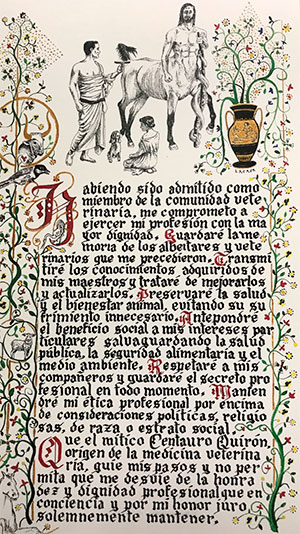 Habiendo sido admitido como
miembro de la comunidad vete
rinaria, me comprometo a
ejercer mi profesión con la ma
yor dignidad. Guardaré la me
moria de los albeitares y vete
rinarios que me precedieron. Transmi
tiré los conocimientos adquiridos de
mis maestros y trataré de mejorarlos
y actualizarlos. Preservaré la salud
y el bienestar animal, evitando su su
frimiento innecesario. Antepondré
el beneficio social a mis intereses par
ticulares salvaguardando la salud
pública, la seguridad alimentaria y el
medio ambiente. Respetaré a mis
compañeros y guardaré el secreto pro
fesional en todo momento. Manten
dré mi ética profesional por encima
de consideraciones políticas, religio
sas, de raza o estrato social.
Que el mítico Centauro Quirón,
origen de la medicina veterina
ria, guíe mis pasos y no per
mita que me desvíe de la honra
dez y dignidad profesional que en
conciencia y por mi honor juro
solemnemente mantener.